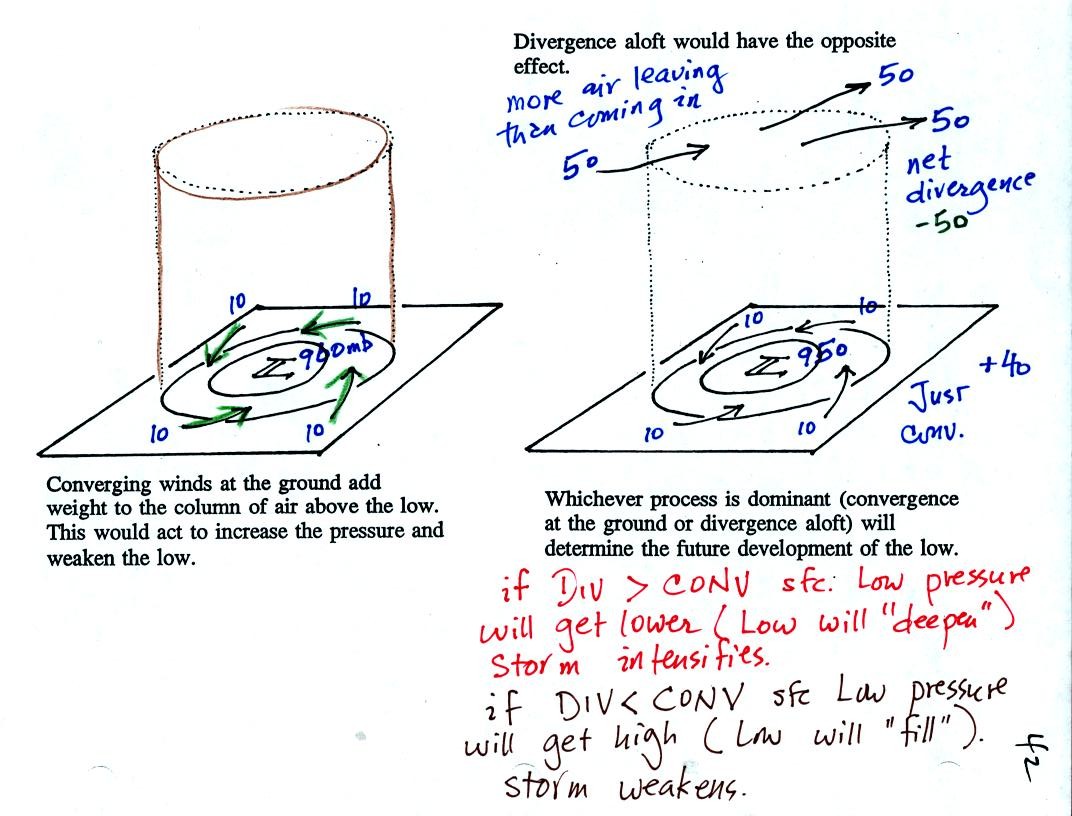 Divergence aloft would have the opposite
effect.
more air leaving
than coming in
50
50
50
net
divergence
-50
10
10
960mb
10
10
10
10
950
10
10
+40
Just
conv.
Converging winds at the ground add
weight to the column of air above the low.
This would act to increase the pressure and
weaken the low.
Whichever process is dominant (convergence
at the ground or divergence aloft) will
determine the future development of the low.
if DIV > CONV sfc: Low pressure
will get lower (Low will "deepen")
Storm intensifies.
if DIV < CONV sfc Low pressure
will get high (Low will "fill").
storm weakens.
42